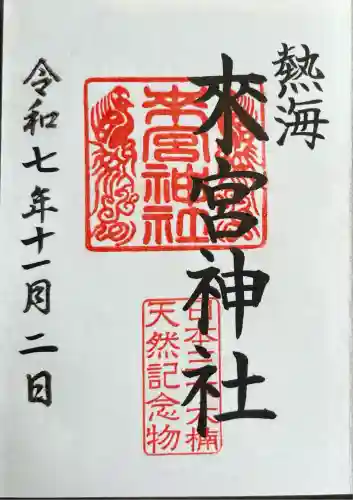 熱海
來宮神社
令和七年十一月二日
來宮神社
日本三大木楠
天然記念物